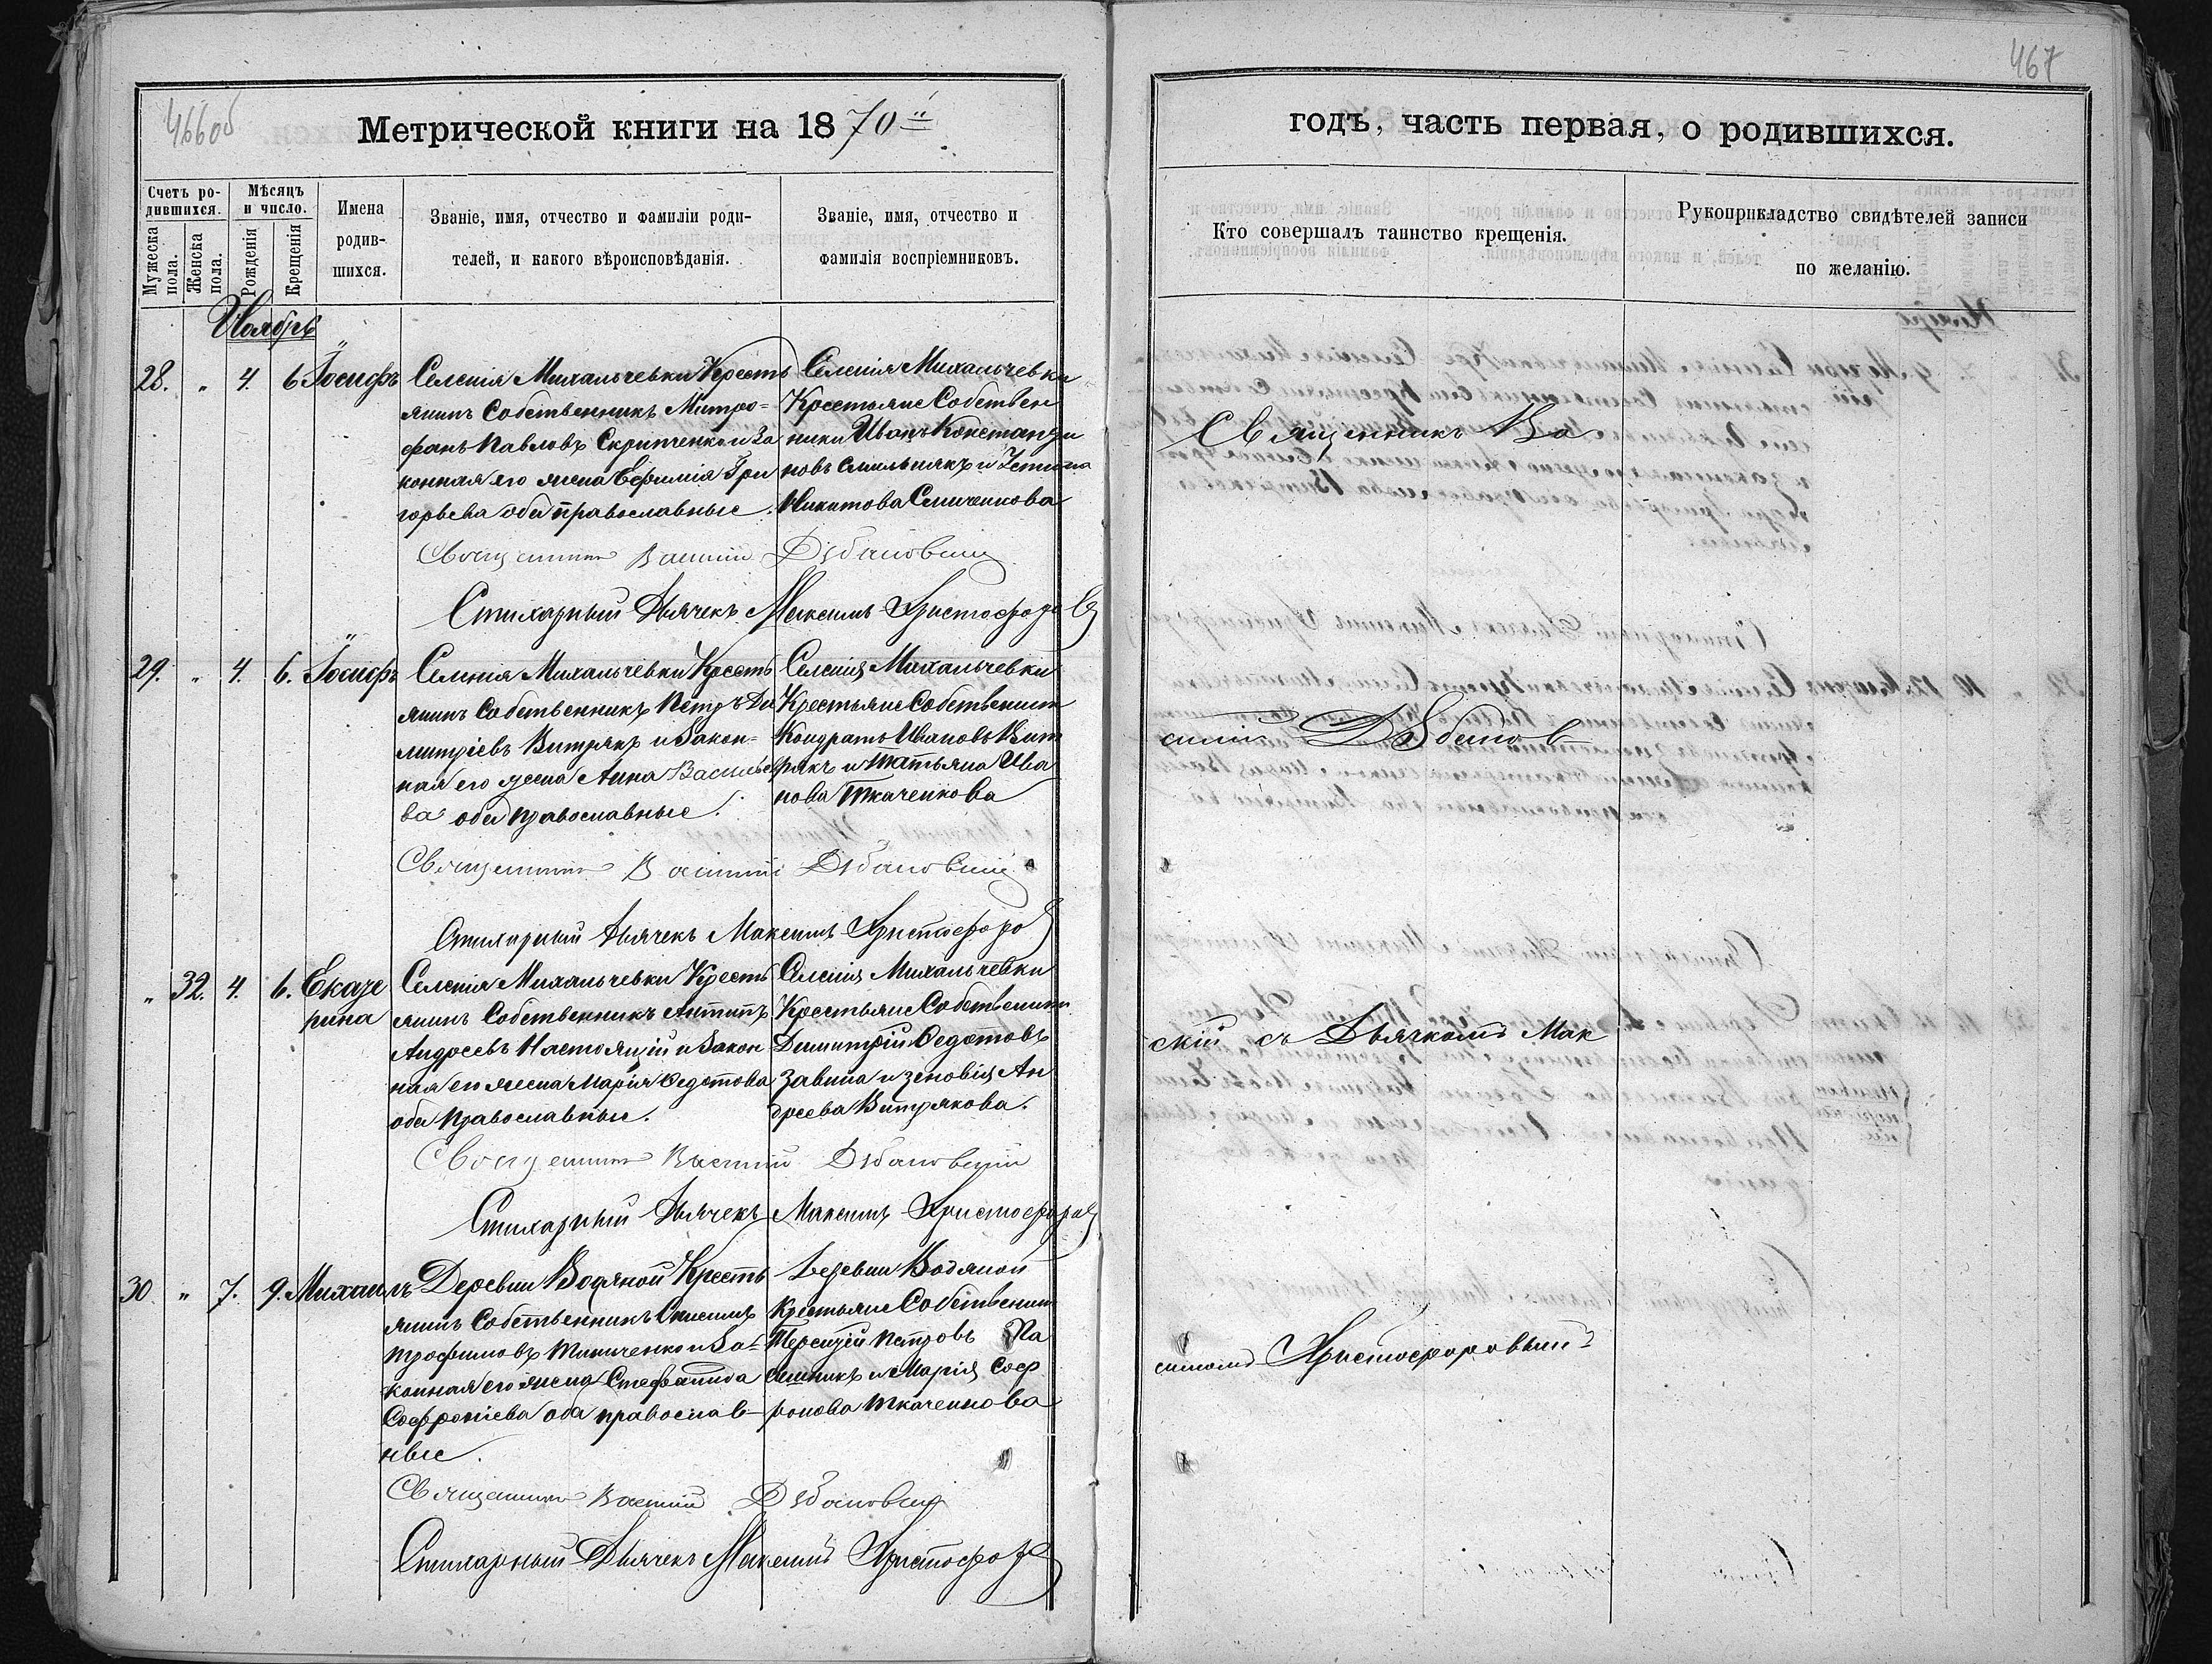 466об
467
Метрической книги на 1870й
годъ, часть первая, о родившихся.
Счетъ родившихся.
Мужеска пола.
Женска пола.
Мѣсяцъ и число.
Рожденія
Крещенія
Имена родив-
шихся.
Званіе, имя, отчество и фамиліи роди-
телей, и какого вѣроисповѣданія.
Званіе, имя, отчество и
фамилія воспріемниковъ.
Кто совершалъ таинство крещенія.
Рукоприкладство свидѣтелей записи
по желанію.
Ноябрь
28. " 4. 6 Іосифъ
Селенія Михальчевки Кресть
янинъ Собственникъ Митро=
фанъ Павловъ Скрипченко и За
конная его жена Ефимія Гри
горьева оба православные.
Селенія Михальчевки
Крестьяне Собствен
ники Иванъ Константи
новъ и
Никитова
Священникъ Василій Дѣбановскій
Стихарный Дьячекъ Максимъ Христофоров
29. " 4. 6. Іосифъ
Селенія Михальчевки Кресть
янинъ Собственникъ Петръ Ди
митріевъ Витрякъ и Закон=
ная его жена Анна Василье
ва оба православные.
Селенія Михальчевки
Крестьяне Собственни
Кондратъ Ивановъ Вит
рякъ и Татьяна Ива
нова Ткаченкова
Священникъ Василій Дѣбановскій
Стихарный Дьячекъ Максимъ Христофоро
" 32. 4. 6. Екате
рина
Селенія Михальчевки Кресть
янинъ Собственникъ Антипъ
Андреевъ Настоящій и Закон
ная его жена Марія Федотова
оба православные.
Селенія Михальчевки
Крестьяне Собственни
Димитрій Федотовъ
Завина и Зеновія Ан
дреева Витрякова.
Священникъ Василій Дѣбановскій
Стихарный Дьячекъ Максимъ Христофоров
30. " 7. 9. Михаилъ
Деревни Водяной Кресть
янинъ Собственникъ Онисимъ
Трофимовъ и За=
конная его жена Стефанида
Софроніева оба православ-
ные.
Деревни Водяной
Крестьяне Собственни
Терентій Петровъ Па
сишникъ и Марія Соф
ронова Ткаченкова
Священникъ Василій Дѣбановскій
Стихарный Дьячекъ Максимъ Христофоро
Священникъ Ва
силій Дѣбанов
скій съ Дьячкомъ Мак
симомъ Христофоровымъ